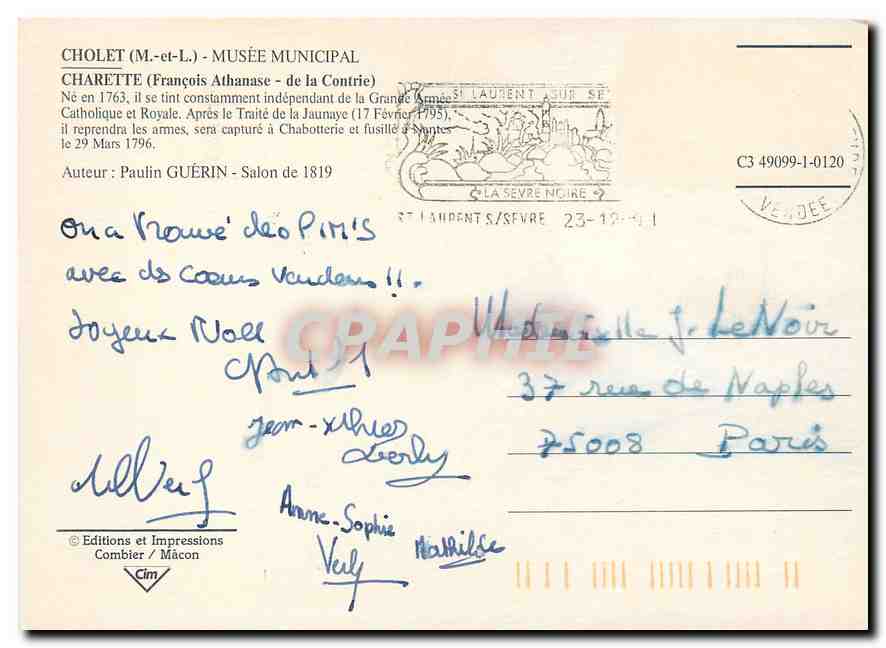 CHOLET (M.-et-L.) - MUSÉE MUNICIPAL
CHARETTE (François Athanase - de la Contrie)
Né en 1763, il se tint constamment indépendant de la Grande Armée
Catholique et Royale. Après le Traité de la Jaunaye (17 Février 1795),
il reprendra les armes, sera capturé à Chabotterie et fusillé à Nantes
le 29 Mars 1796.
Auteur : Paulin GUÉRIN - Salon de 1819
ST LAURENT SUR SE
LA SEVRE NOIRE
ST LAURENT S/SEVRE 23-12-
VENDEE
C3 49099-1-0120
on a trouvé des PIM'S
avec des Coeurs Vendeens !!.
Joyeux Noël
Jean-
Anne-Sophie
Verly
Mathilde
Mademoiselle J. LeNoir
37 rue de Naples
75008 Paris
CPAPHIL
© Editions et Impressions
Combier / Mâcon
Cim